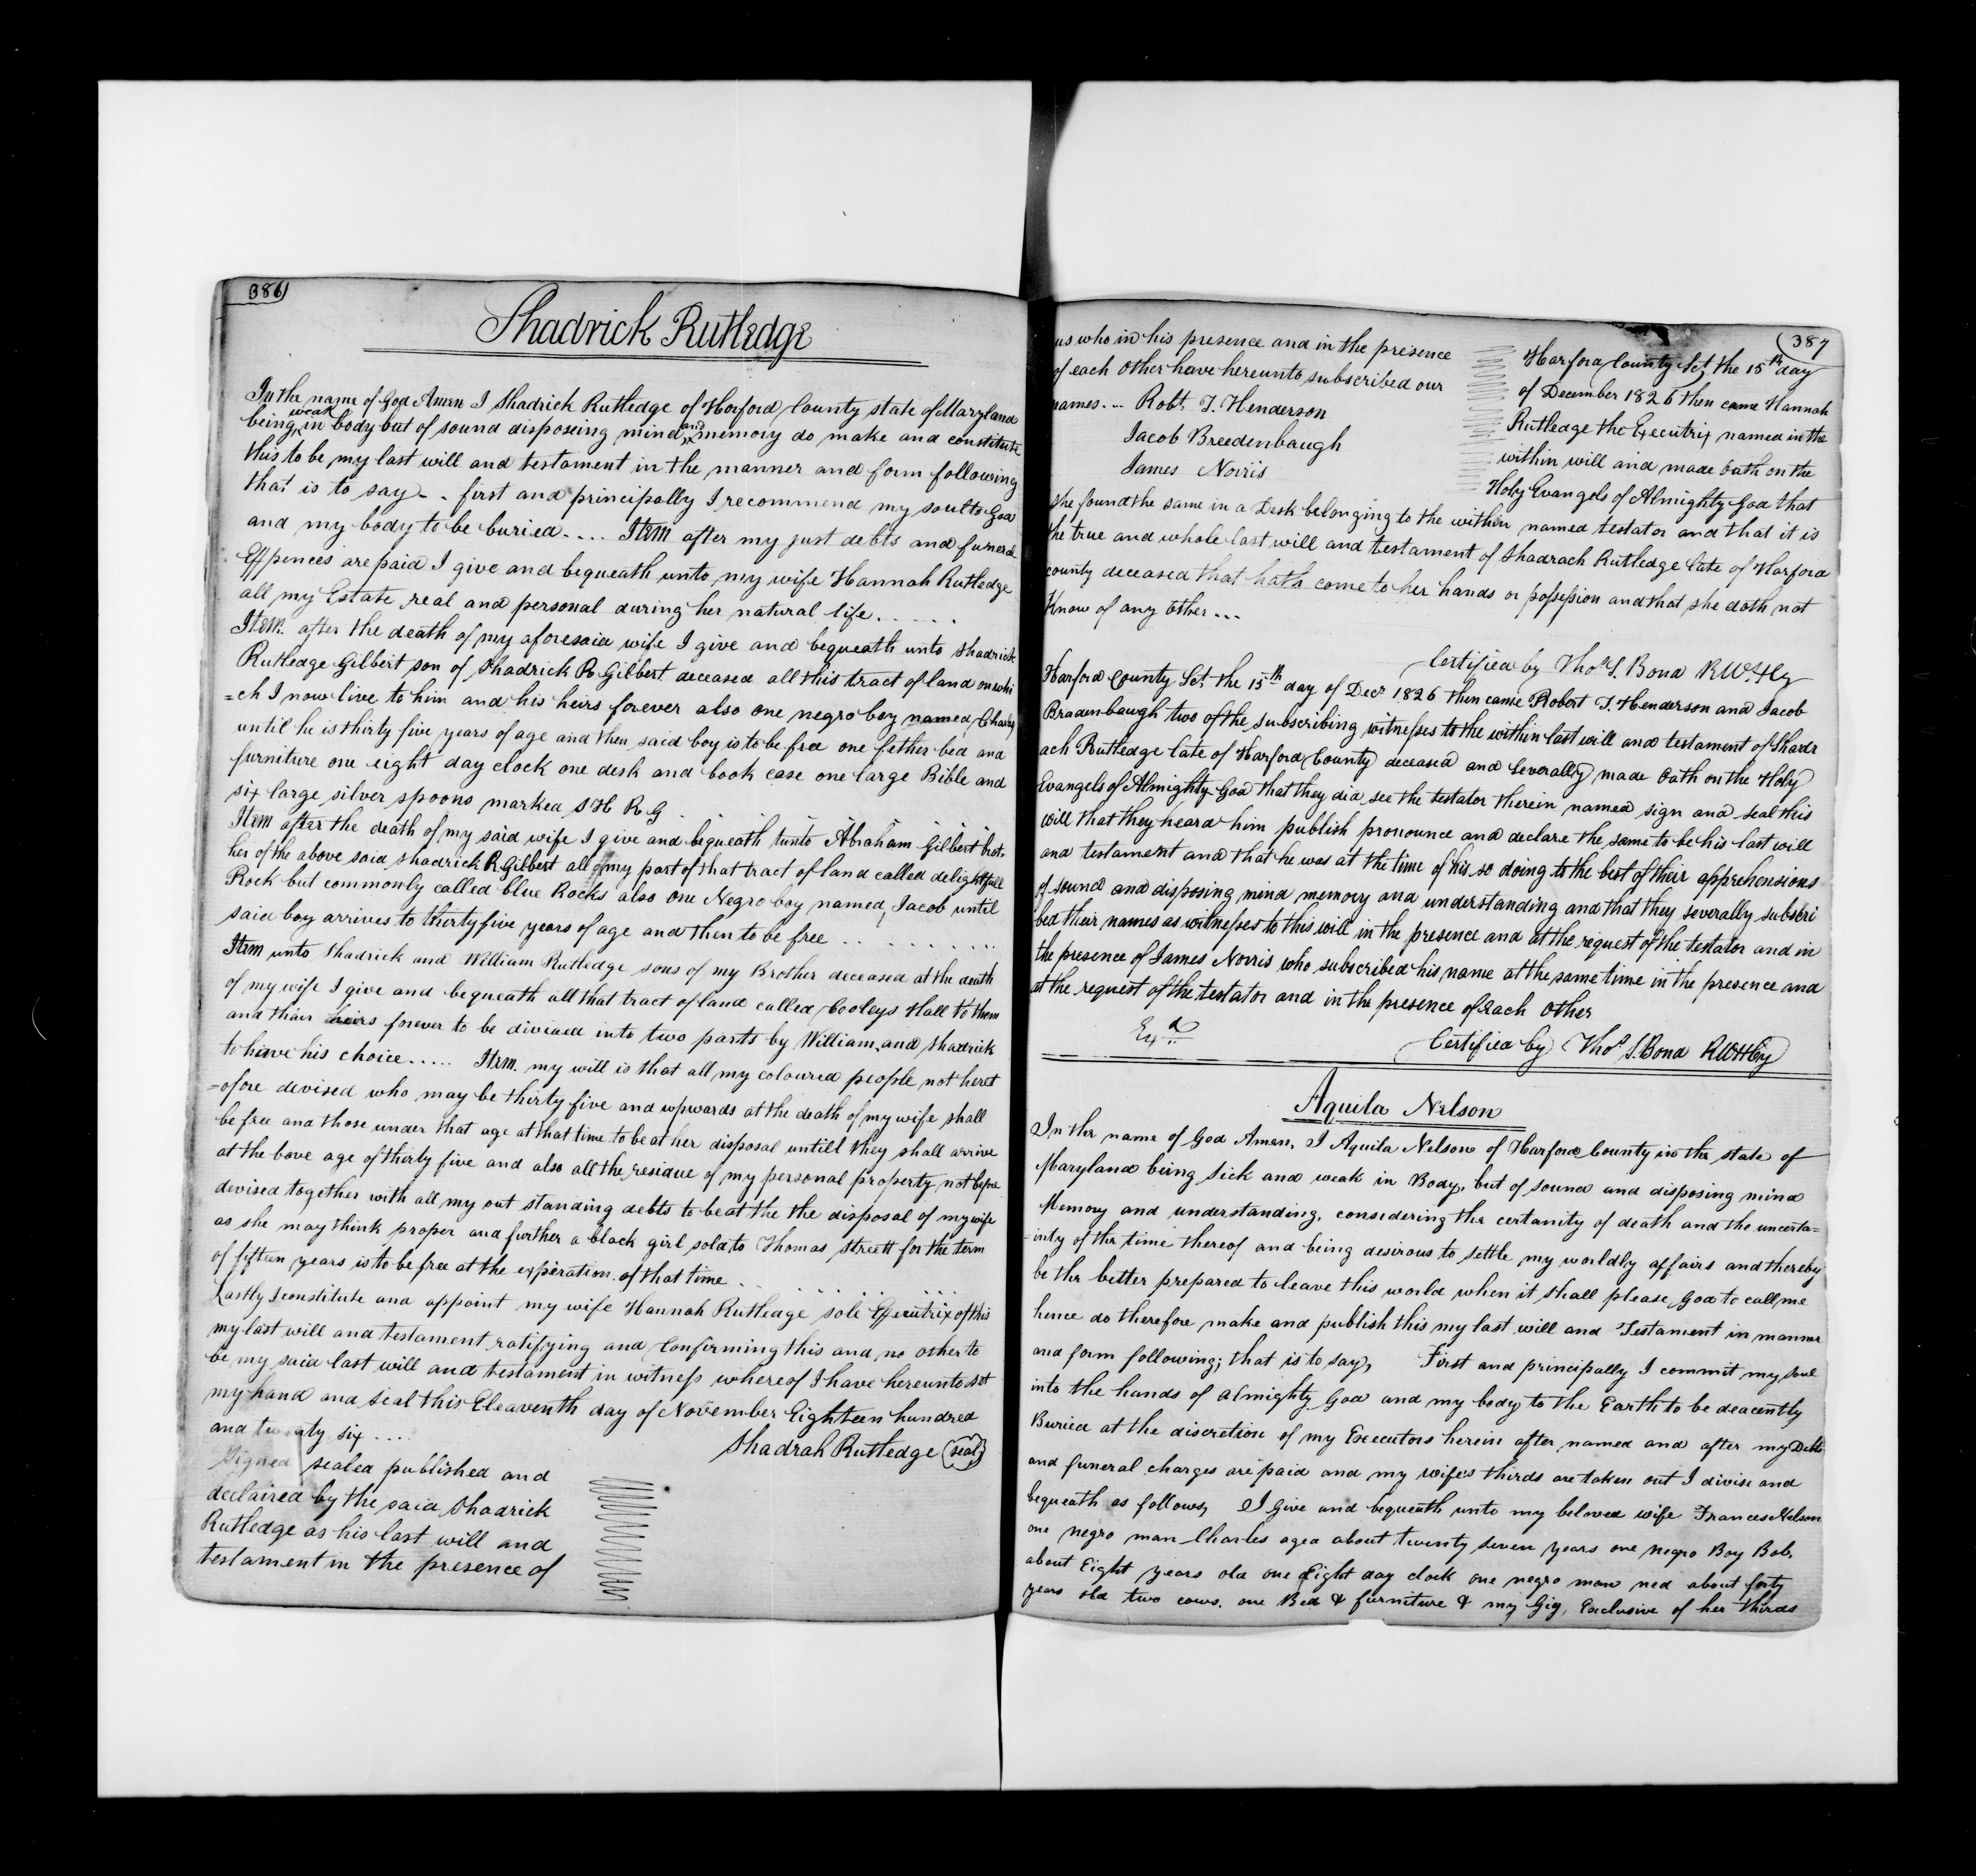 386
Shadrick Rutledge
In the name of God Amen I Shadrick Rutledge of Harford County state of Maryland
being weak in body but of sound disposeing mind and memory do make and constitute
this to be my last will and testament in the manner and form following
that is to say - - first and principally I recommend my soul to God
and my body to be buried.... Item after my just debts and funeral
Expences are paid I give and bequeath unto my wife Hannah Rutledge
all my Estate real and personal during her natural life.....
Item. after the death of my aforesaid wife I give and bequeath unto Shadrick
Rutledge Gilbert son of Shadrick R Gilbert deceased all this tract of land on whi
=ch I now live to him and his heirs forever also one negro boy named Charley
until he is thirty five years of age and then said boy is to be free one fether bed and
furniture one eight day clock one desk and book case one large Bible and
six large silver spoons marked S H R G
Item after the death of my said wife I give and bequeath unto Abraham Gilbert brot
her of the above said Shadrick R. Gilbert all of my part of that tract of land called delightfull
Rock but commonly called blue Rocks also one Negro boy named Jacob until
said boy arrives to thirty five years of age and then to be free ..........
Item unto Shadrick and William Rutledge sons of my Brother deceased at the death
of my wife I give and bequeath all that tract of land called Cooleys Hall to them
and thair heirs forever to be divided into two parts by William and Shadrick
to have his choice..... Item. my will is that all my coloured people not heret
=ofore devised who may be thirty five and upwards at the death of my wife shall
be free and those under that age at that time to be at her disposal untill they shall arrive
at the bove age of thirty five and also all the residue of my personal property not before
devised together with all my out standing debts to be at the the disposal of my wife
as she may think proper and further a black girl sold to Thomas Streett for the term
of fifteen years is to be free at the experation of that time
Lastly I constitute and appoint my wife Hannah Rutledge sole Executrix of this
my last will and testament ratifying and Confirming this and no other to
be my said last will and testament in witness whereof I have hereunto set
my hand and seal this Eleaventh day of November Eighteen hundred
and twenty six ....
Shadrah Rutledge (seal)
Signed sealed published and
declaired by the said Shadrick
Rutledge as his last will and
testament in the presence of
387
us who in his presence and in the presence
of each other have hereunto subscribed our
names... Robt. T. Henderson
Jacob Breedenbaugh
James Norris
Harford County Sct. the 15th day
of December 1826 then came Hannah
Rutledge the Executrix named in the
within will and made Oath on the
Holy Evangels of Almighty God that
she found the same in a Desk belonging to the within named testator and that it is
the true and whole last will and testament of Shadrach Rutledge late of Harford
county deceased that hath come to her hands or possession and that she doth not
Know of any other...
Certified by Thos S. Bond R.W.H.Cy
Harford County Sct. the 15th day of Decr 1826 then came Robert T. Henderson and Jacob
Bradenbaugh two of the subscribing witnesses to the within last will and testament of Shadr
ach Rutledge late of Harford County deceased and Severally made Oath on the Holy
Evangels of Almighty God that they did see the testator therein named sign and seal this
will that they heard him publish pronounce and declare the same to be his last will
and testament and that he was at the time of his so doing to the best of their apprehensions
of sound and disposing mind memory and understanding and that they severally subscri
bed their names as witnesses to this will in the presence and at the request of the testator and in
the presence of James Norris who subscribed his name at the same time in the presence and
at the request of the testator and in the presence of Each Other
Exd
Certified by Thos S. Bond RWHCy
Aquila Nelson
In the name of God Amen, I Aquila Nelson of Harford County in the state of
Maryland being Sick and weak in Body, but of sound and disposing mind
Memory and understanding, considering the certanity of death and the uncerta=
=inty of the time thereof and being desirous to settle my worldly affairs and thereby
be the better prepared to leave this world when it shall please God to call me
hence do therefore make and publish this my last will and Testament in manner
and form following; that is to say, First and principally I commit my Soul
into the hands of almighty God and my body to the Earth to be deacently
Buried at the discretion of my Executors herein after named and after my Debts
and funeral charges are paid and my wifes thirds are taken out I divise and
bequeath as follows, I Give and bequeath unto my beloved wife Frances Nelson
one negro man Charles aged about twenty seven years one negro Boy Bob,
about Eight years old one Eight day clock one negro man ned about forty
years old two cows. one Bed & furniture & my Gig, Exclusive of her thirds